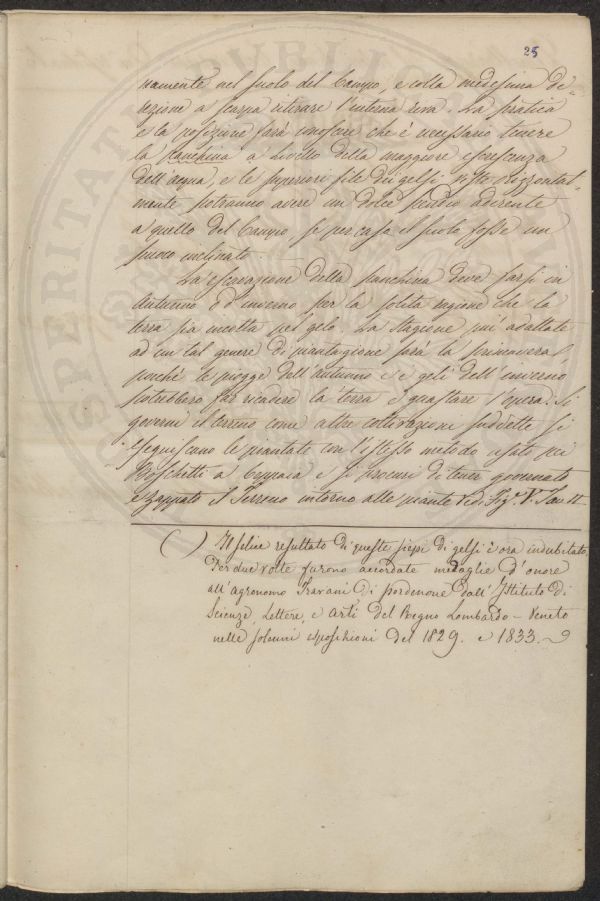 25
namente nel suolo del Campo, e colla medesima di=
rezione a scarpa ritirare l'interna riva. La pratica
e la posizione farà conoscere che è necessario tenere
la panchina a livello della maggiore escrescenza
dell'acqua, e le superiori file dei gelsi poste orizzontal=
mente potranno avere un dolce pendio aderente
a quello del Campo se per caso il suolo fosse un
poco inclinato.
La escavazione della panchina deve farsi in
Autunno o d'inverno per la solita ragione che la
terra sia incotta pel gelo. La stagione più adattata
ad un tal genere di piantagione sarà la primavera
perché le piogge dell'autunno e i geli dell'inverno
potrebbero far ricadere la terra e guastare l'opera. Si
governi il terreno come altre coltivazioni suddette si
eseguiscano le piantate con l'istesso metodo usato pei
Boschetti a Ceppaia e si procuri di tener governato
e zappato il Terreno intorno alle piante Ved. Fig.ª V. Tav. II
( ) Il felice resultato di queste siepi di gelsi è ora indubitato,
Per due volte furono accordate medaglie d'onore
all'agronomo Travani di pordenone dall'Istituto di
Scienze, Lettere, e arti del Regno Lombardo-Veneto
nelle solenni esposizioni del 1829. e 1833.